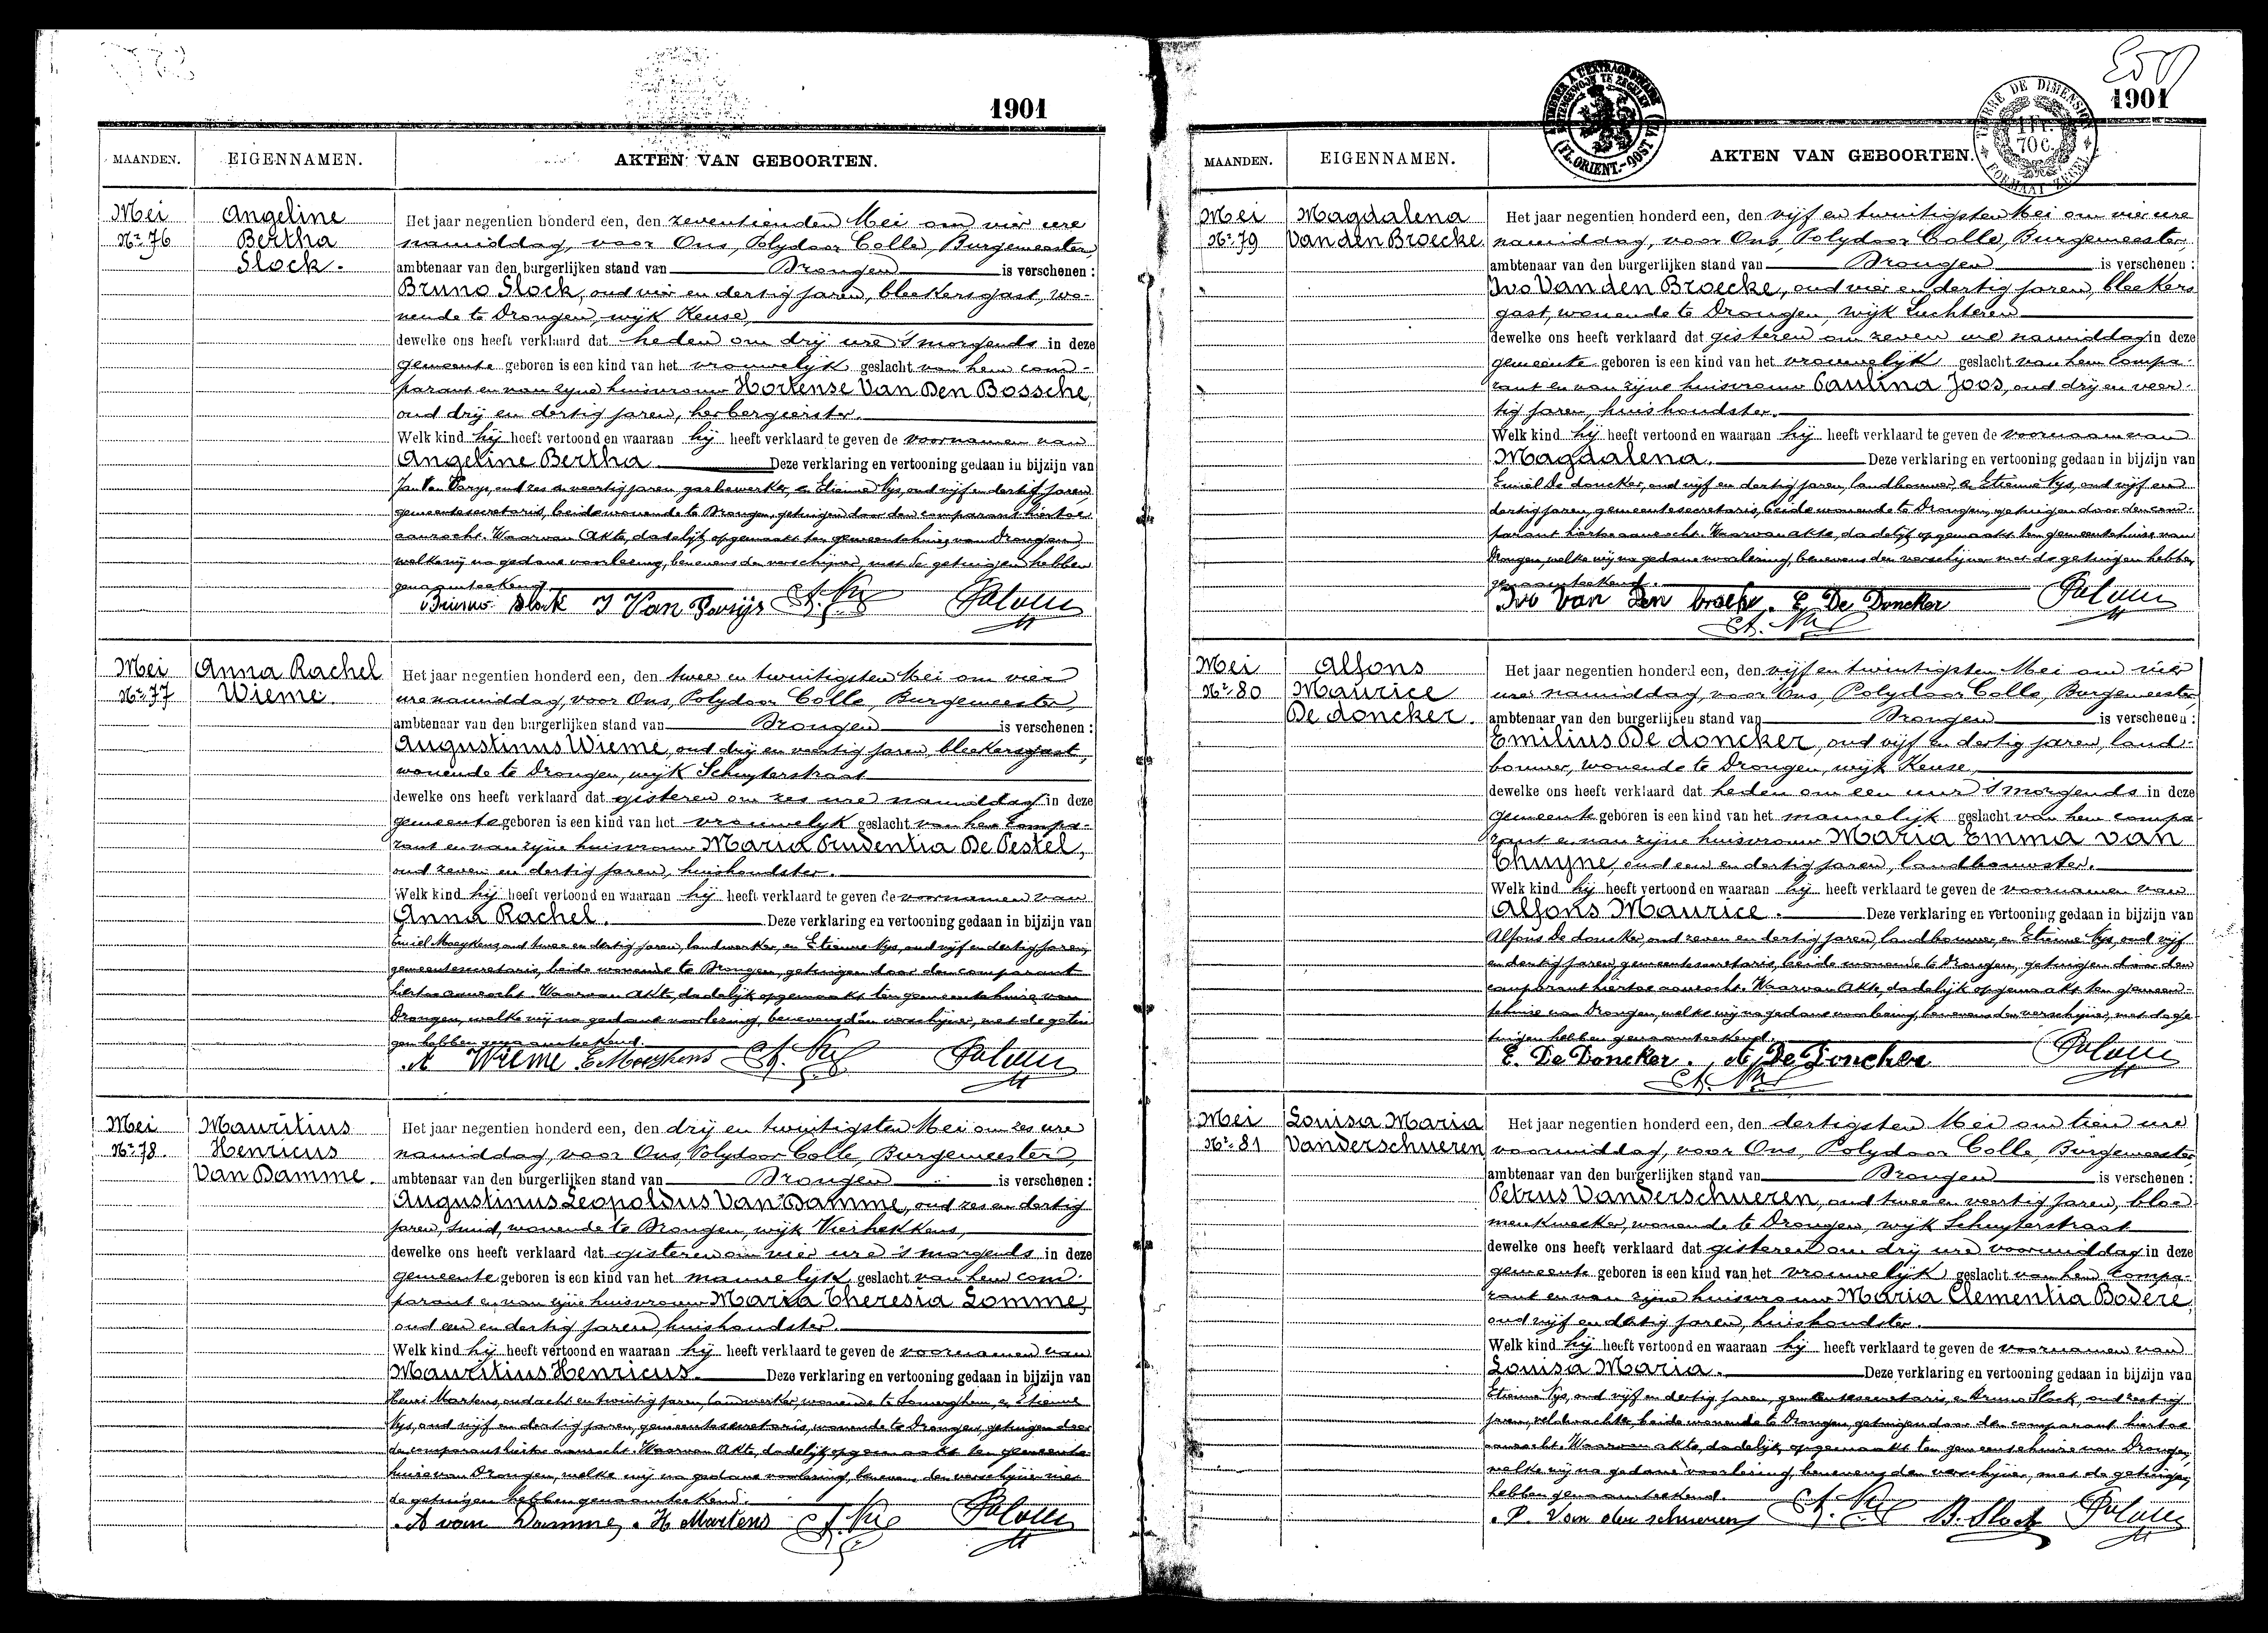 1901
MAANDEN. EIGENNAMEN. AKTEN VAN GEBOORTEN.
Mei
Nr 76
Angeline
Bertha
Slock.
Het jaar negentien honderd een, den zeventienden Mei om vier ure
namiddag, voor Ons, Polydoor Colle, Burgemeester,
ambtenaar van den burgerlijken stand van Drongen is verschenen :
Bruno Slock, oud vier en dertig jaren, bleekersgast, wo-
nende te Drongen, wijk Keuse,
dewelke ons heeft verklaard dat heden om drij ure 's morgends in deze
gemeente geboren is een kind van het vrouwelijk geslacht van hem com-
parant en van zijne huisvrouw Hortense Van Den Bossche,
oud drij en dertig jaren, herbergierster.
Welk kind hij heeft vertoond en waaraan hij heeft verklaard te geven de voornamen van
Angeline Bertha Deze verklaring en vertooning gedaan in bijzijn van
Jan Van Parys, oud zes en veertig jaren, gasbewerker, en Etienne Nys, oud vijf en dertig jaren
gemeentesecretaris, beide wonende te Drongen, getuigen door den comparant hiertoe
aanzocht. Waarvan Akte, dadelijk opgemaakt ten gemeentehuize van Drongen,
welke wij na gedane voorlezing, benevens den verschijner, met de getuigen hebben
genaamteekend.
Bruno Slock J Van Parijs
Mei
Nr 77
Anna Rachel
Wieme
Het jaar negentien honderd een, den twee en twintigsten Mei om vier
ure namiddag, voor Ons, Polydoor Colle, Burgemeester,
ambtenaar van den burgerlijken stand van Drongen is verschenen :
Augustinus Wieme, oud drij en veertig jaren, bleekersgast,
wonende te Drongen, wijk Schuyterstraat
dewelke ons heeft verklaard dat gisteren om zes ure namiddag in deze
gemeente geboren is een kind van het vrouwelyk geslacht van hem compa-
rant en van zijne huisvrouw Maria Prudentia De Pestel,
oud zeven en dertig jaren, huishoudster.
Welk kind hij heeft vertoond en waaraan hij heeft verklaard te geven de voornamen van
Anna Rachel. Deze verklaring en vertooning gedaan in bijzijn van
Emiel Moeykens, oud twee en dertig jaren, landwerker, en Etienne Nys, oud vijf en dertig jaren,
gemeentesecretaris, beide wonende te Drongen, getuigen door den comparant
hiertoe aanzocht. Waarvan Akte, dadelijk opgemaakt ten gemeentehuize van
Drongen, welke wij na gedane voorlezing, benevens den verschijner, met de getui
gen hebben genaamteekend.
A Wieme E Moeykens
Mei
Nr 78.
Mauritius
Henricus
Van Damme.
Het jaar negentien honderd een, den drij en twintigsten Mei om zes ure
namiddag, voor Ons, Polydoor Colle, Burgemeester,
ambtenaar van den burgerlijken stand van Drongen is verschenen :
Augustinus Leopoldus Van Damme, oud zes en dertig
jaren, smid, wonende te Drongen, wijk Vierhekkens,
dewelke ons heeft verklaard dat gisteren om vier ure 's morgends in deze
gemeente geboren is een kind van het mannelijk geslacht van hem com-
parant en van zijne huisvrouw Maria Theresia Lomme,
oud een en dertig jaren, huishoudster.
Welk kind hij heeft vertoond en waaraan hij heeft verklaard te geven de voornamen van
Mauritius Henricus Deze verklaring en vertooning gedaan in bijzijn van
Henri Martens, oud acht en twintig jaren, landwerker, wonende te Somerghem, en Etienne
Nys, oud vijf en dertig jaren, gemeentesecretaris, wonende te Drongen, getuigen door
de comparant hiertoe aanzocht. Waarvan Akte, dadelijk opgemaakt ten gemeente
huize van Drongen, welke wij na gedane voorlezing, benevens den verschijner met
de getuigen hebben genaamteekend.
A van Damme, H Martens
1901
MAANDEN. EIGENNAMEN. AKTEN VAN GEBOORTEN.
TIMBRE DE DIMENSION
1 Fr.
70 c.
FORMAAT ZEGEL
(FL. ORIENT.-OOST VL.)
Mei
Nr 79
Magdalena
Van den Broecke
Het jaar negentien honderd een, den vijf en twintigsten Mei om vier ure
namiddag, voor Ons, Polydoor Colle, Burgemeester,
ambtenaar van den burgerlijken stand van Drongen is verschenen :
Ivo Van den Broecke, oud vier en dertig jaren, bleekers
gast, wonende te Drongen, wijk Luchteren
dewelke ons heeft verklaard dat gisteren om zeven ure namiddag in deze
gemeente geboren is een kind van het vrouwelijk geslacht van hem compa-
rant en van zijne huisvrouw Paulina Joos, oud drij en veer-
tig jaren, huishoudster.
Welk kind hij heeft vertoond en waaraan hij heeft verklaard te geven de voornaam van
Magdalena. Deze verklaring en vertooning gedaan in bijzijn van
Emiel De doncker, oud vijf en dertig jaren, landbouwer, en Etienne Nys, oud vijf en
dertig jaren, gemeentesecretaris, beide wonende te Drongen, getuigen door den com-
parant hiertoe aanzocht. Waarvan akte, dadelijk opgemaakt ten gemeentehuize van
Drongen, welke wij na gedane voorlezing, benevens den verschijner met de getuigen hebben
genaamteekend.
Ivo Van Den broeke. E De Doncker
Mei
Nr 80
Alfons
Maurice
De doncker.
Het jaar negentien honderd een, den vijf en twintigsten Mei om vier
ure namiddag, voor Ons, Polydoor Colle, Burgemeester,
ambtenaar van den burgerlijken stand van Drongen is verschenen :
Emilius De doncker, oud vijf en dertig jaren, land-
bouwer, wonende te Drongen, wijk Keuse,
dewelke ons heeft verklaard dat heden om een uur 's morgends in deze
gemeente geboren is een kind van het mannelijk geslacht van hem compa-
rant en van zijne huisvrouw Maria Emma Van
Thuyne, oud een en dertig jaren, landbouwster.
Welk kind hij heeft vertoond en waaraan hij heeft verklaard te geven de voornamen van
Alfons Maurice. Deze verklaring en vertooning gedaan in bijzijn van
Alfons De doncker, oud zeven en dertig jaren, landbouwer, en Etienne Nys, oud vijf
en dertig jaren, gemeentesecretaris, beide wonende te Drongen, getuigen door den
comparant hiertoe aanzocht. Waarvan Akte, dadelijk opgemaakt ten gemeen-
tehuize van Drongen, welke wij na gedane voorlezing, benevens den verschijner, met de ge-
tuigen hebben genaamteekend.
E. De Doncker. A. De Doncker
Mei
Nr 81
Louisa Maria
Vanderschueren
Het jaar negentien honderd een, den dertigsten Mei om tien ure
voormiddag, voor Ons, Polydoor Colle, Burgemeester,
ambtenaar van den burgerlijken stand van Drongen is verschenen :
Petrus Vanderschueren, oud twee en veertig jaren, bloe
menkweeker, wonende te Drongen, wijk Schuyterstraat
dewelke ons heeft verklaard dat gisteren om drij ure voormiddag in deze
gemeente geboren is een kind van het vrouwelijk geslacht van hem compa-
rant en van zijne huisvrouw Maria Clementia Bodere,
oud vijf en dertig jaren, huishoudster.
Welk kind hij heeft vertoond en waaraan hij heeft verklaard te geven de voornamen van
Louisa Maria. Deze verklaring en vertooning gedaan in bijzijn van
Etienne Nys, oud vijf en dertig jaren, gemeentesecretaris, en Bruno Slock, oud zestig
jaren, veldwachter, beide wonende te Drongen, getuigen door den comparant hiertoe
aanzocht. Waarvan akte, dadelijk opgemaakt ten gemeentehuize van Drongen,
welke wij na gedane voorlezing, benevens den verschijner, met de getuigen
hebben genaamteekend.
P. Van der schueren B. Slock